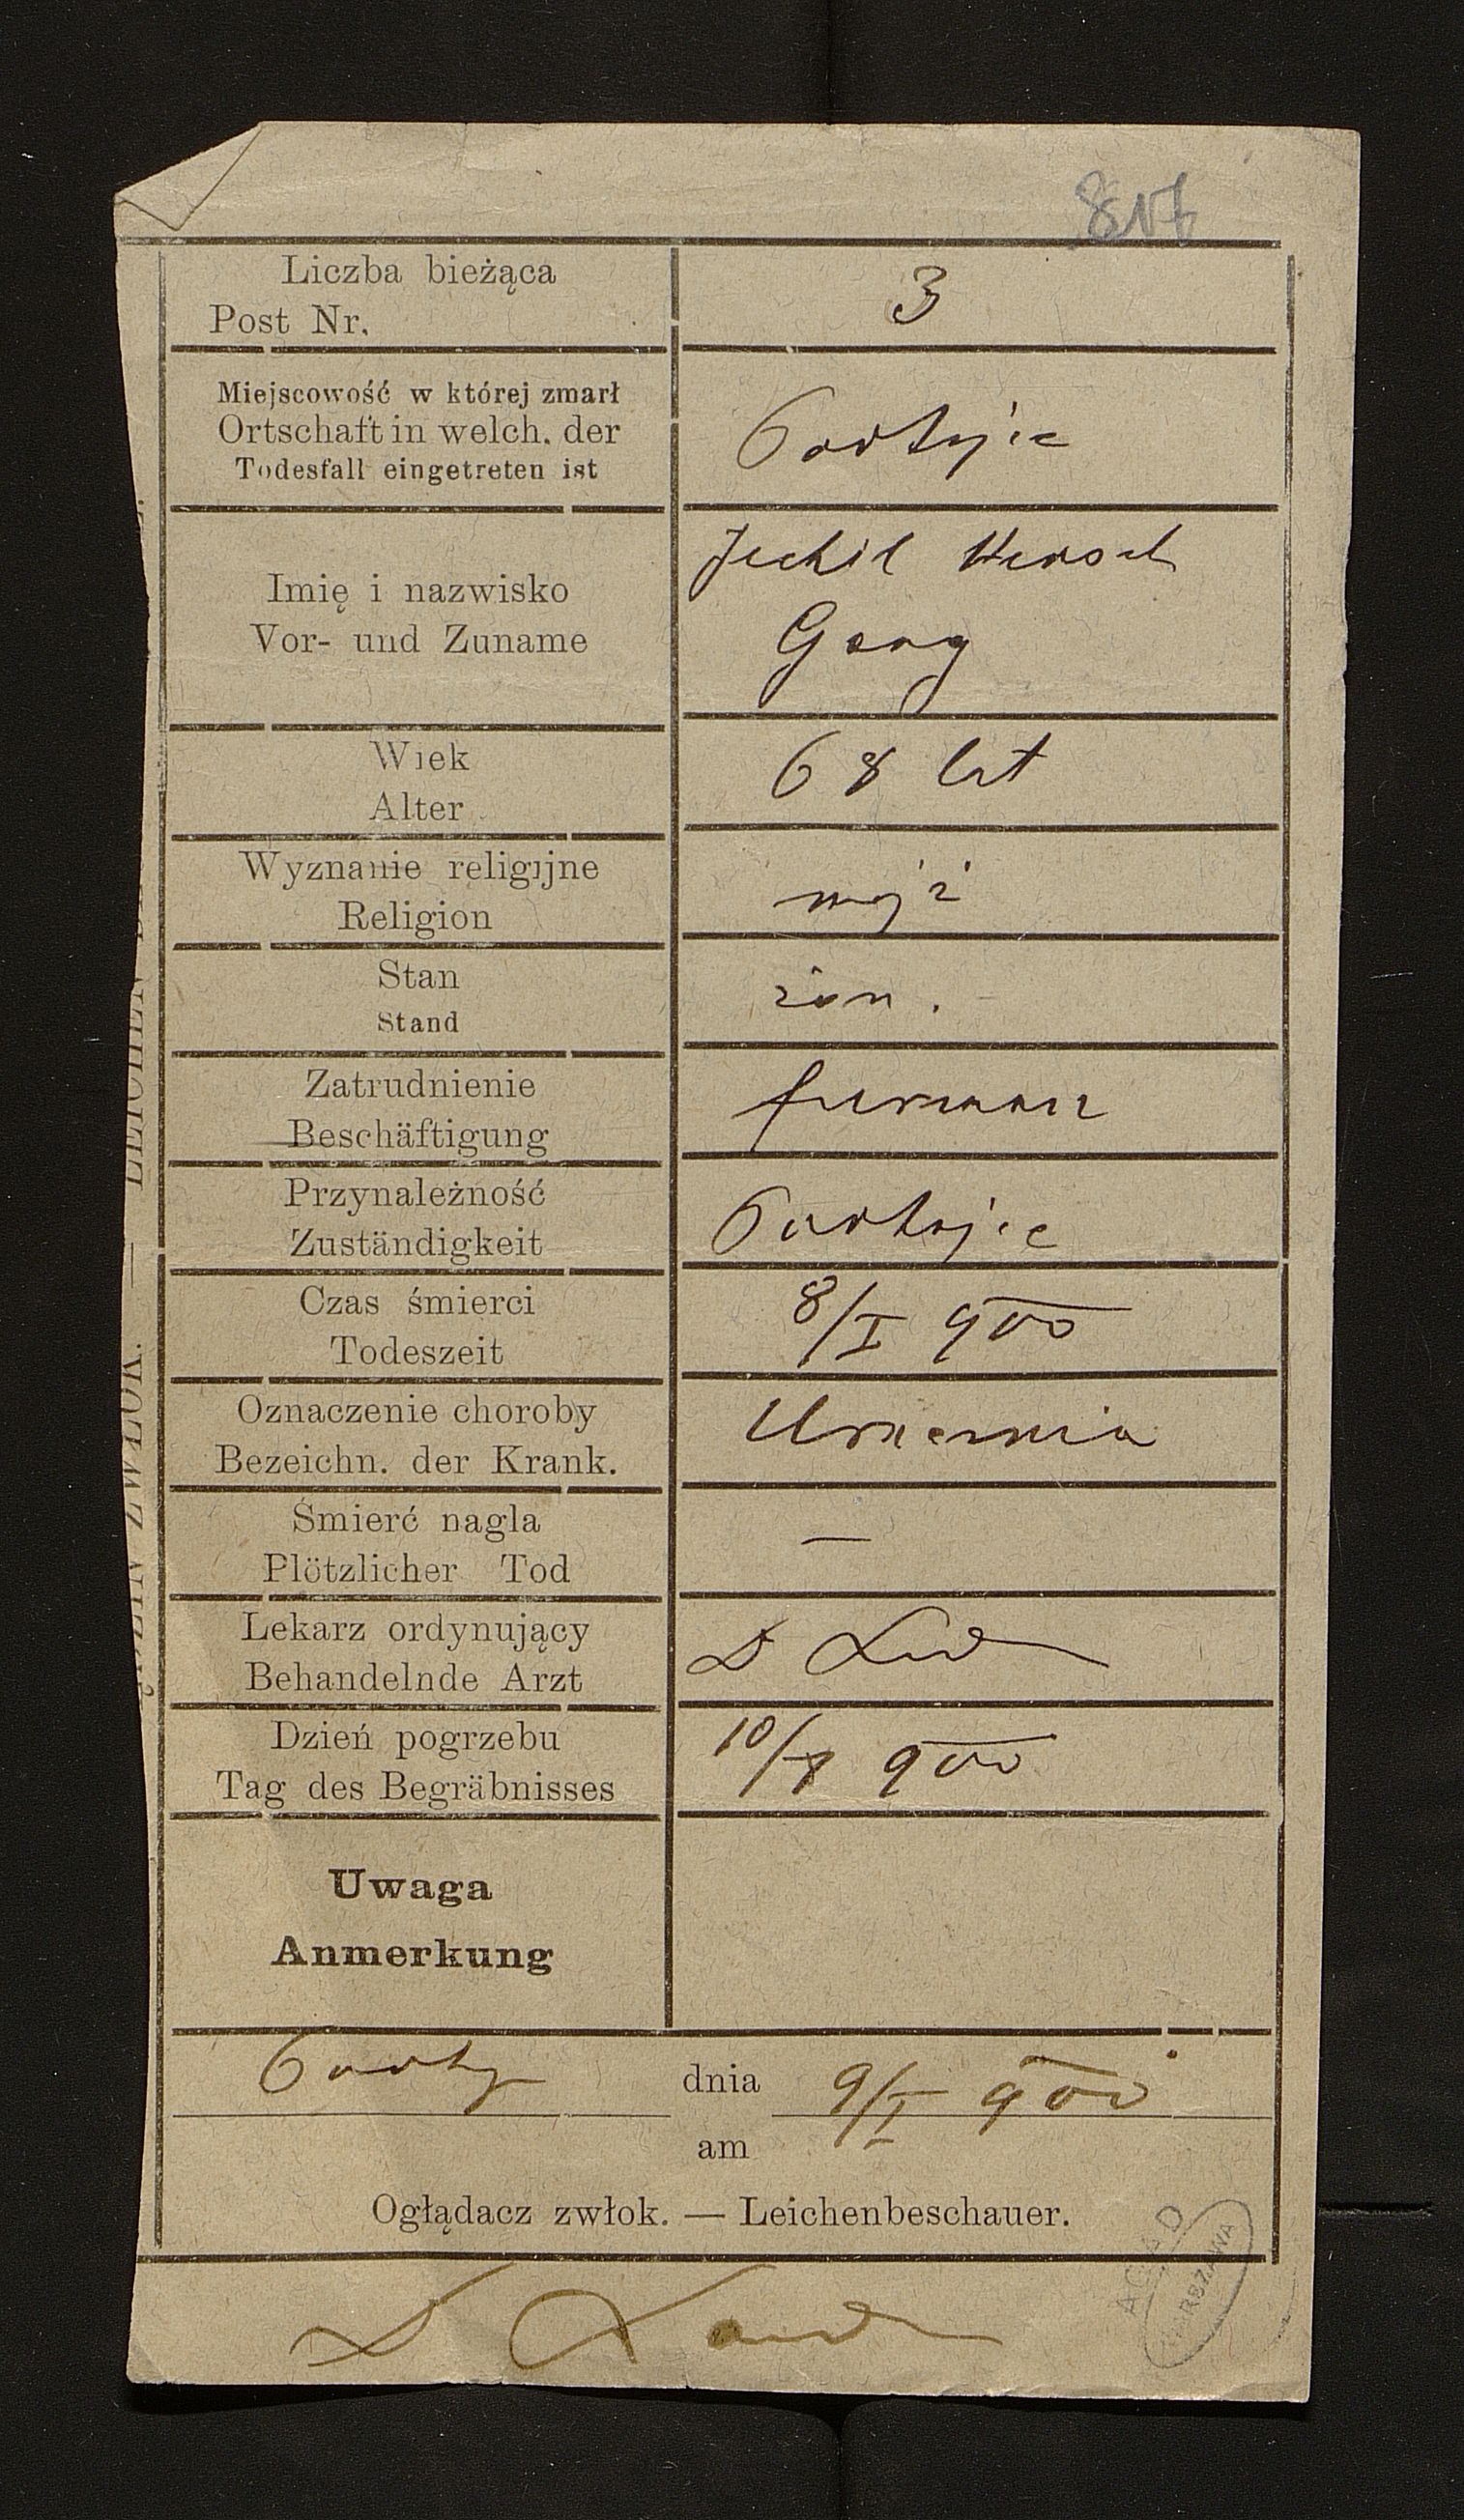 817
Liczba bieżąca
Post Nr.
3
Miejscowość w której zmarł
Ortschaft in welch. der
Todesfall eingetreten ist
Podhajce
Imię i nazwisko
Vor- und Zuname
Jechil Hersch
Gang
Wiek
Alter
68 lat
Wyznanie religijne
Religion
mojż
Stan
Stand
żon.
Zatrudnienie
Beschäftigung
furman
Przynależność
Zuständigkeit
Podhajce
Czas śmierci
Todeszeit
8/I 900
Oznaczenie choroby
Bezeichn. der Krank.
Uraemia
Śmierć nagla
Plötzlicher Tod
—
Lekarz ordynujący
Behandelnde Arzt
D
Dzień pogrzebu
Tag des Begräbnisses
10/I 900
Uwaga
Anmerkung
Podhj dnia 9/I 900
am
Oglądacz zwłok. — Leichenbeschauer.
D
AGAD
WARSZAWA